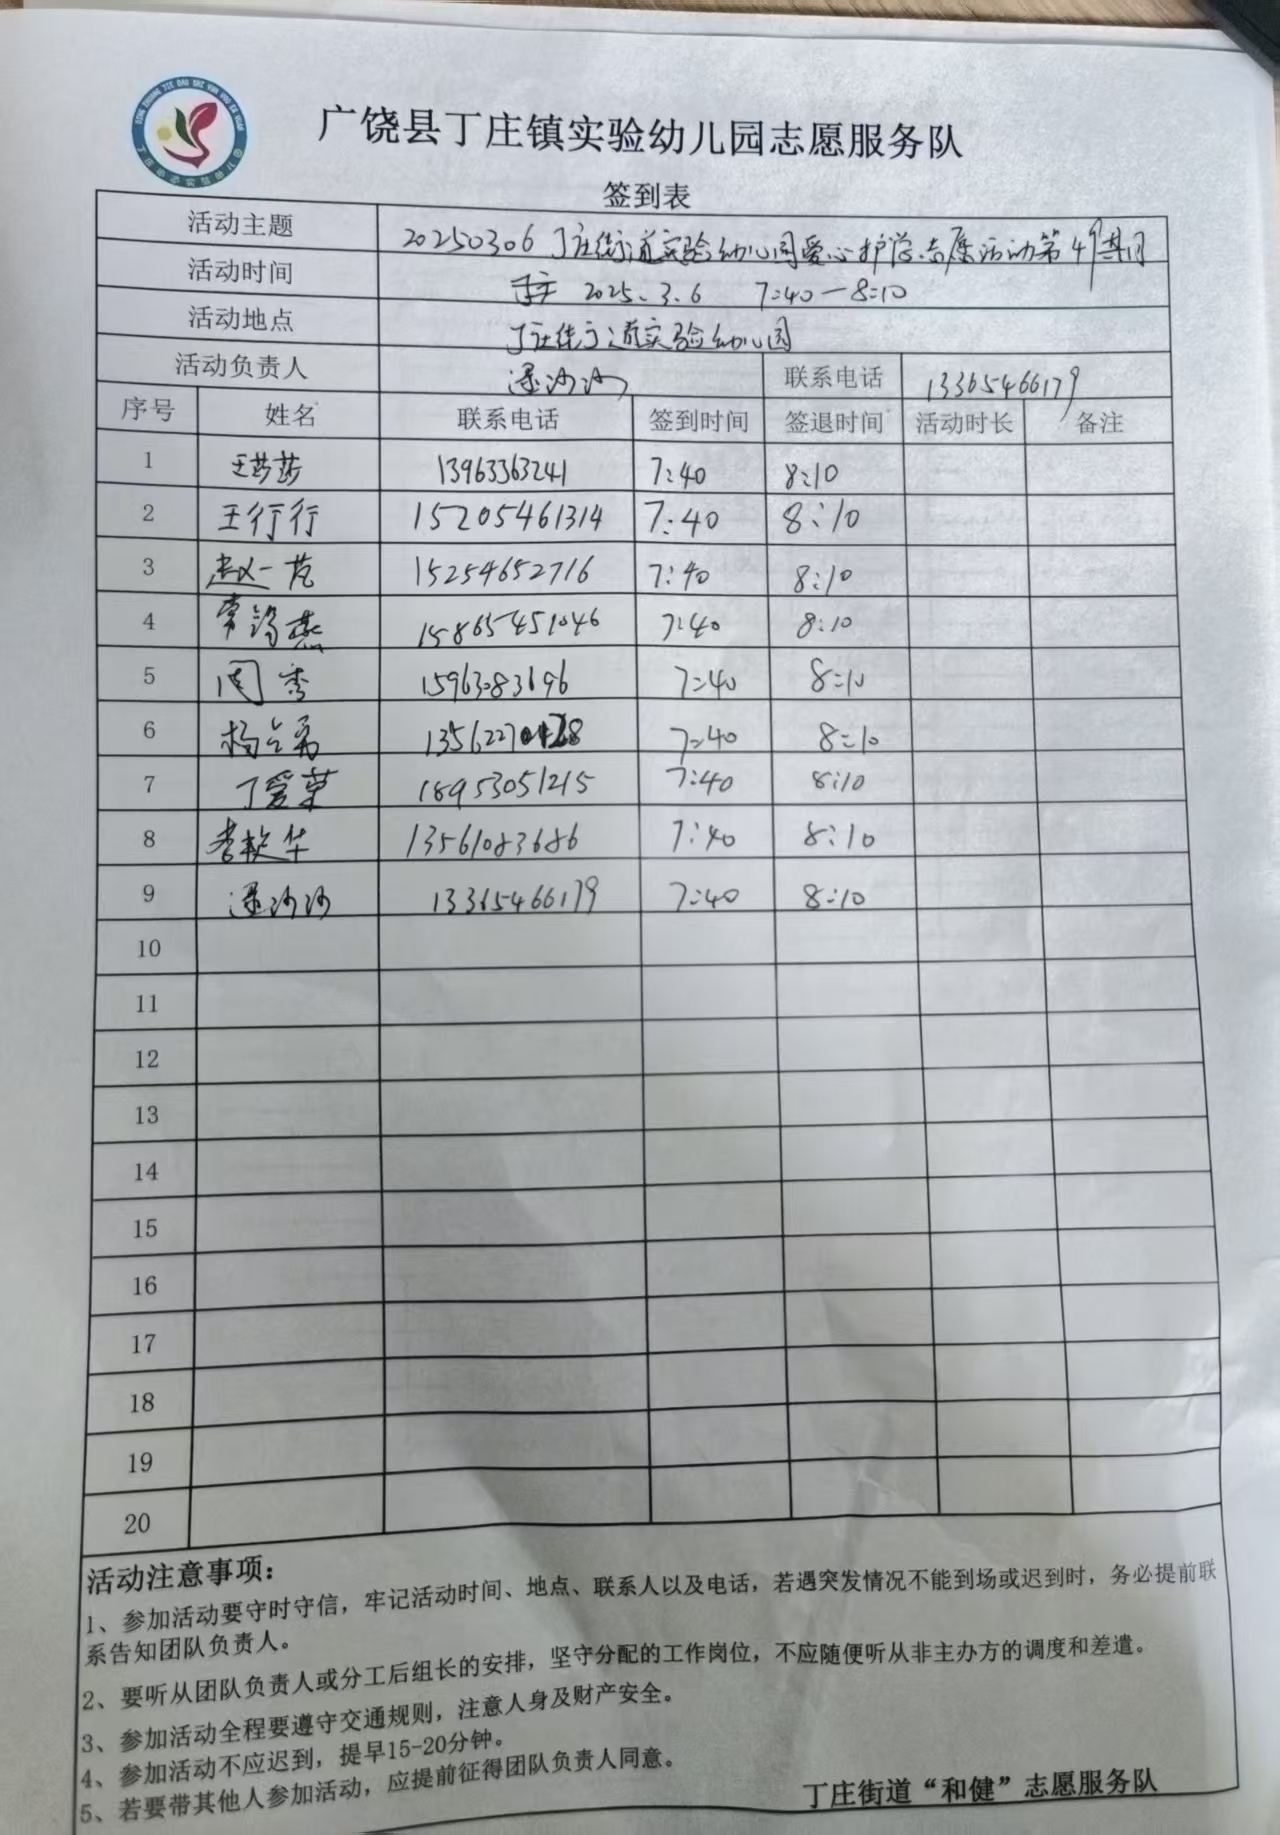 广饶县丁庄镇实验幼儿园志愿服务队
签到表
活动主题 20250306丁庄街道实验幼儿园爱心护学志愿活动第49期
活动时间 2025.3.6 7:40—8:10
活动地点 丁庄街道实验幼儿园
活动负责人 逯沙沙 联系电话 13365466179
序号 姓名 联系电话 签到时间 签退时间 活动时长 备注
1 王莎莎 13963363241 7:40 8:10
2 王行行 15205461314 7:40 8:10
3 赵一范 15254652716 7:40 8:10
4 常 燕 15865451046 7:40 8:10
5 周秀 15963083696 7:40 8:10
6 杨 7:40 8:10
7 丁爱菊 18953051215 7:40 8:10
8 李 华 13561083686 7:40 8:10
9 逯沙沙 13365466179 7:40 8:10
10
11
12
13
14
15
16
17
18
19
20
活动注意事项：
1、参加活动要守时守信，牢记活动时间、地点、联系人以及电话，若遇突发情况不能到场或迟到时，务必提前联
系告知团队负责人。
2、要听从团队负责人或分工后组长的安排，坚守分配的工作岗位，不应随便听从非主办方的调度和差遣。
3、参加活动全程要遵守交通规则，注意人身及财产安全。
4、参加活动不应迟到，提早15-20分钟。
5、若要带其他人参加活动，应提前征得团队负责人同意。
丁庄街道“和健”志愿服务队